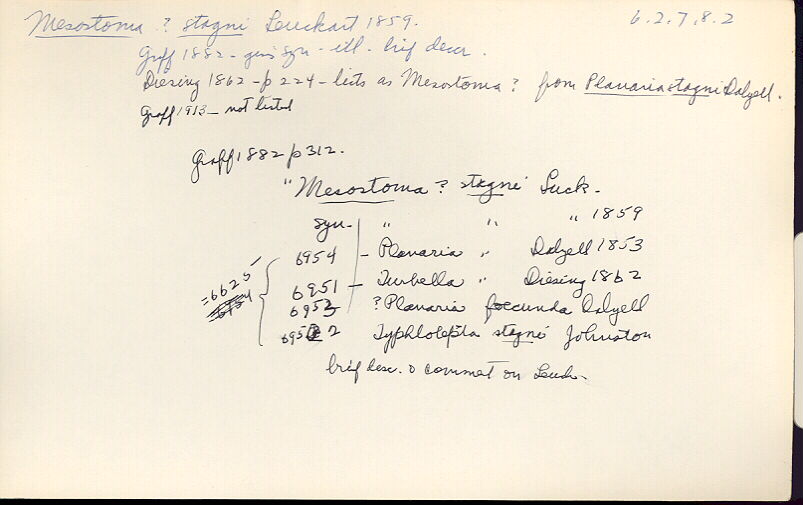 Mesostoma ? stagni Leuckart 1859. 6.2.7.8.2
Graff 1882 - gives syn - etl. brief descr.
Diesing 1862 - p 224 - lists as Mesostoma ? from Planaria stagni Dalyell.
Graff 1913 - not listed
Graff 1882 p 312.
"Mesostoma ? stagni Luck.
syn - " " " 1859
6954 - Planaria " Dalyell 1853
6951 - Turbella " Diesing 1862
=6625
6953 ? Planaria foecunda Dalyell
695 2 Typhlolepta stagni Johnston
brief desc. & commet on Leuck.